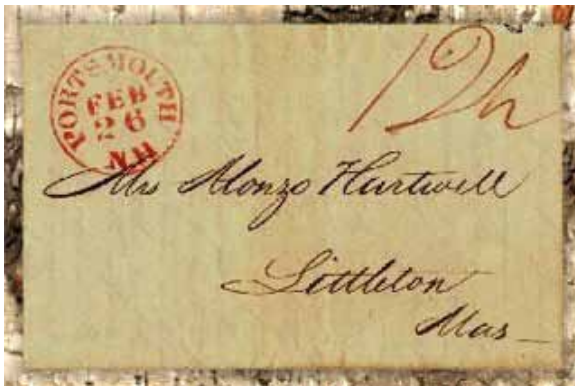 PORTSMOUTH
FEB
26
NH
12½
Mrs Alonzo Hartwell
Littleton
Mas